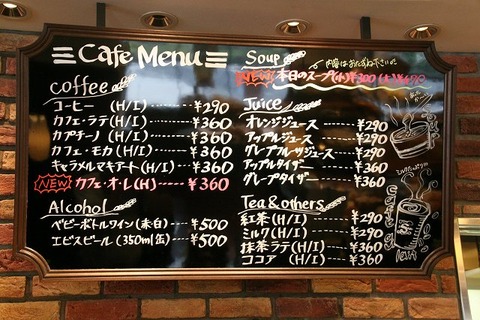 Cafe Menu
coffee
コーヒー (H/I) ¥290
カフェ・ラテ (H/I) ¥360
カプチーノ (H/I) ¥360
カフェ・モカ (H/I) ¥360
キャラメルマキアート (H/I) ¥360
NEW カフェ・オ・レ (H) ¥360
Alcohol
ベビーボトルワイン (赤・白) ¥500
エビスビール (350ml缶) ¥500
Soup
NEW! 本日のスープ(小) ¥300 (大) ¥490
Juice
オレンジジュース ¥290
アップルジュース ¥290
グレープフルーツジュース ¥290
アップルタイザー ¥360
グレープタイザー ¥360
Tea & others
紅茶 (H/I) ¥290
ミルク (H/I) ¥290
抹茶ラテ (H/I) ¥360
ココア (H/I) ¥360